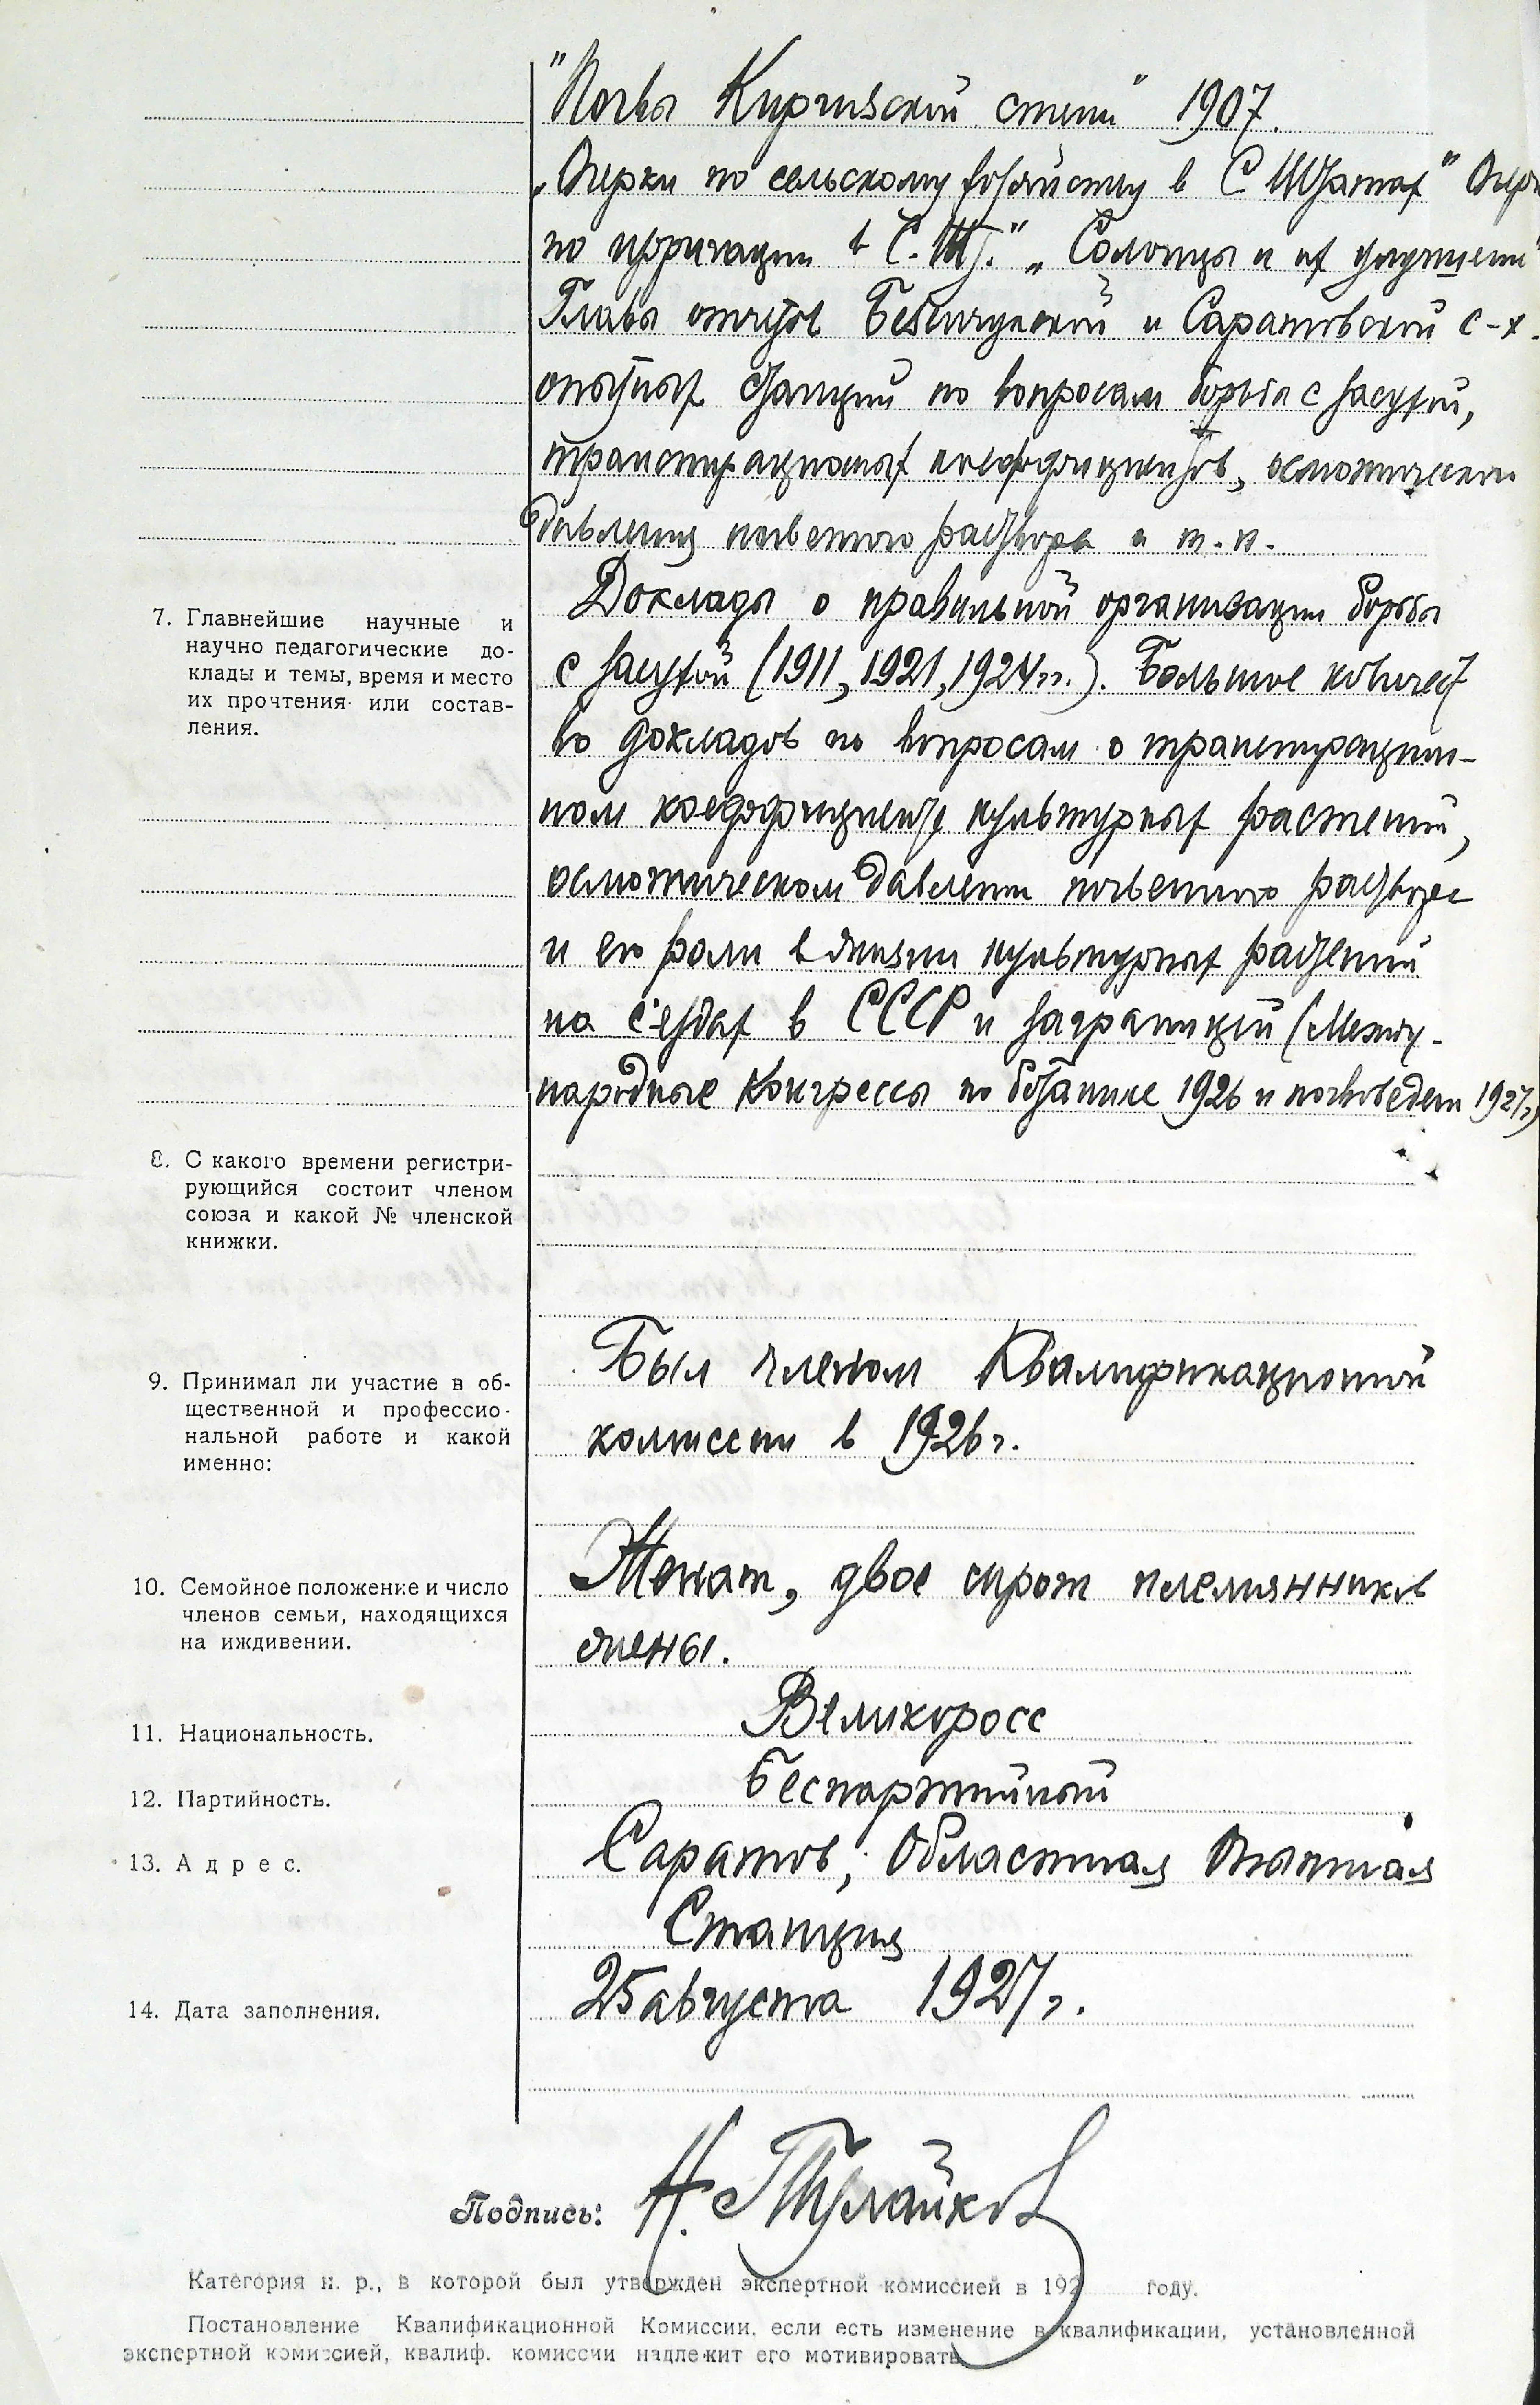 "Почвы Киргизской степи" 1907.
„Очерки по сельскому хозяйству в С Штатах" Очер
по ирригации в С. Шт." „Солонцы и их улучшени"
Главы отчетов Безенчукской и Саратовской с-х.
опытных станций по вопросам борьбы с засухой,
транспирационных коеффициентов, осмотическом
давления почвенного раствора и т. п.
7. Главнейшие научные и
научно педагогические до-
клады и темы, время и место
их прочтения или состав-
ления.
Доклады о правильной организации борьбы
с засухой (1911, 1921, 1924 гг.). Большое количест
во докладов по вопросам о транспирацион-
ном коеффициенте культурных растений,
осмотическом давлении почвенного раствора
и его роли в жизни культурных растений
на с'ездах в СССР и заграницей (Между-
народные Конгрессы по ботанике 1926 и почвоведен 1927 г)
8. С какого времени регистри-
рующийся состоит членом
союза и какой № членской
книжки.
9. Принимал ли участие в об-
щественной и профессио-
нальной работе и какой
именно:
Был членом Квалификационной
комиссии в 1926 г.
10. Семойное положение и число
членов семьи, находящихся
на иждивении.
Женат, двое сирот племянников
жены.
11. Национальность.
Великоросс
12. Партийность.
Беспартийный
13. Адрес.
Саратов, Областная Опытная
Станция
14. Дата заполнения.
25 августа 1927 г.
Подпись: Н. Тулайков
Категория н. р., в которой был утвержден экспертной комиссией в 192 году.
Постановление Квалификационной Комиссии, если есть изменение в квалификации, установленной
экспертной комиссией, квалиф. комиссии надлежит его мотивировать